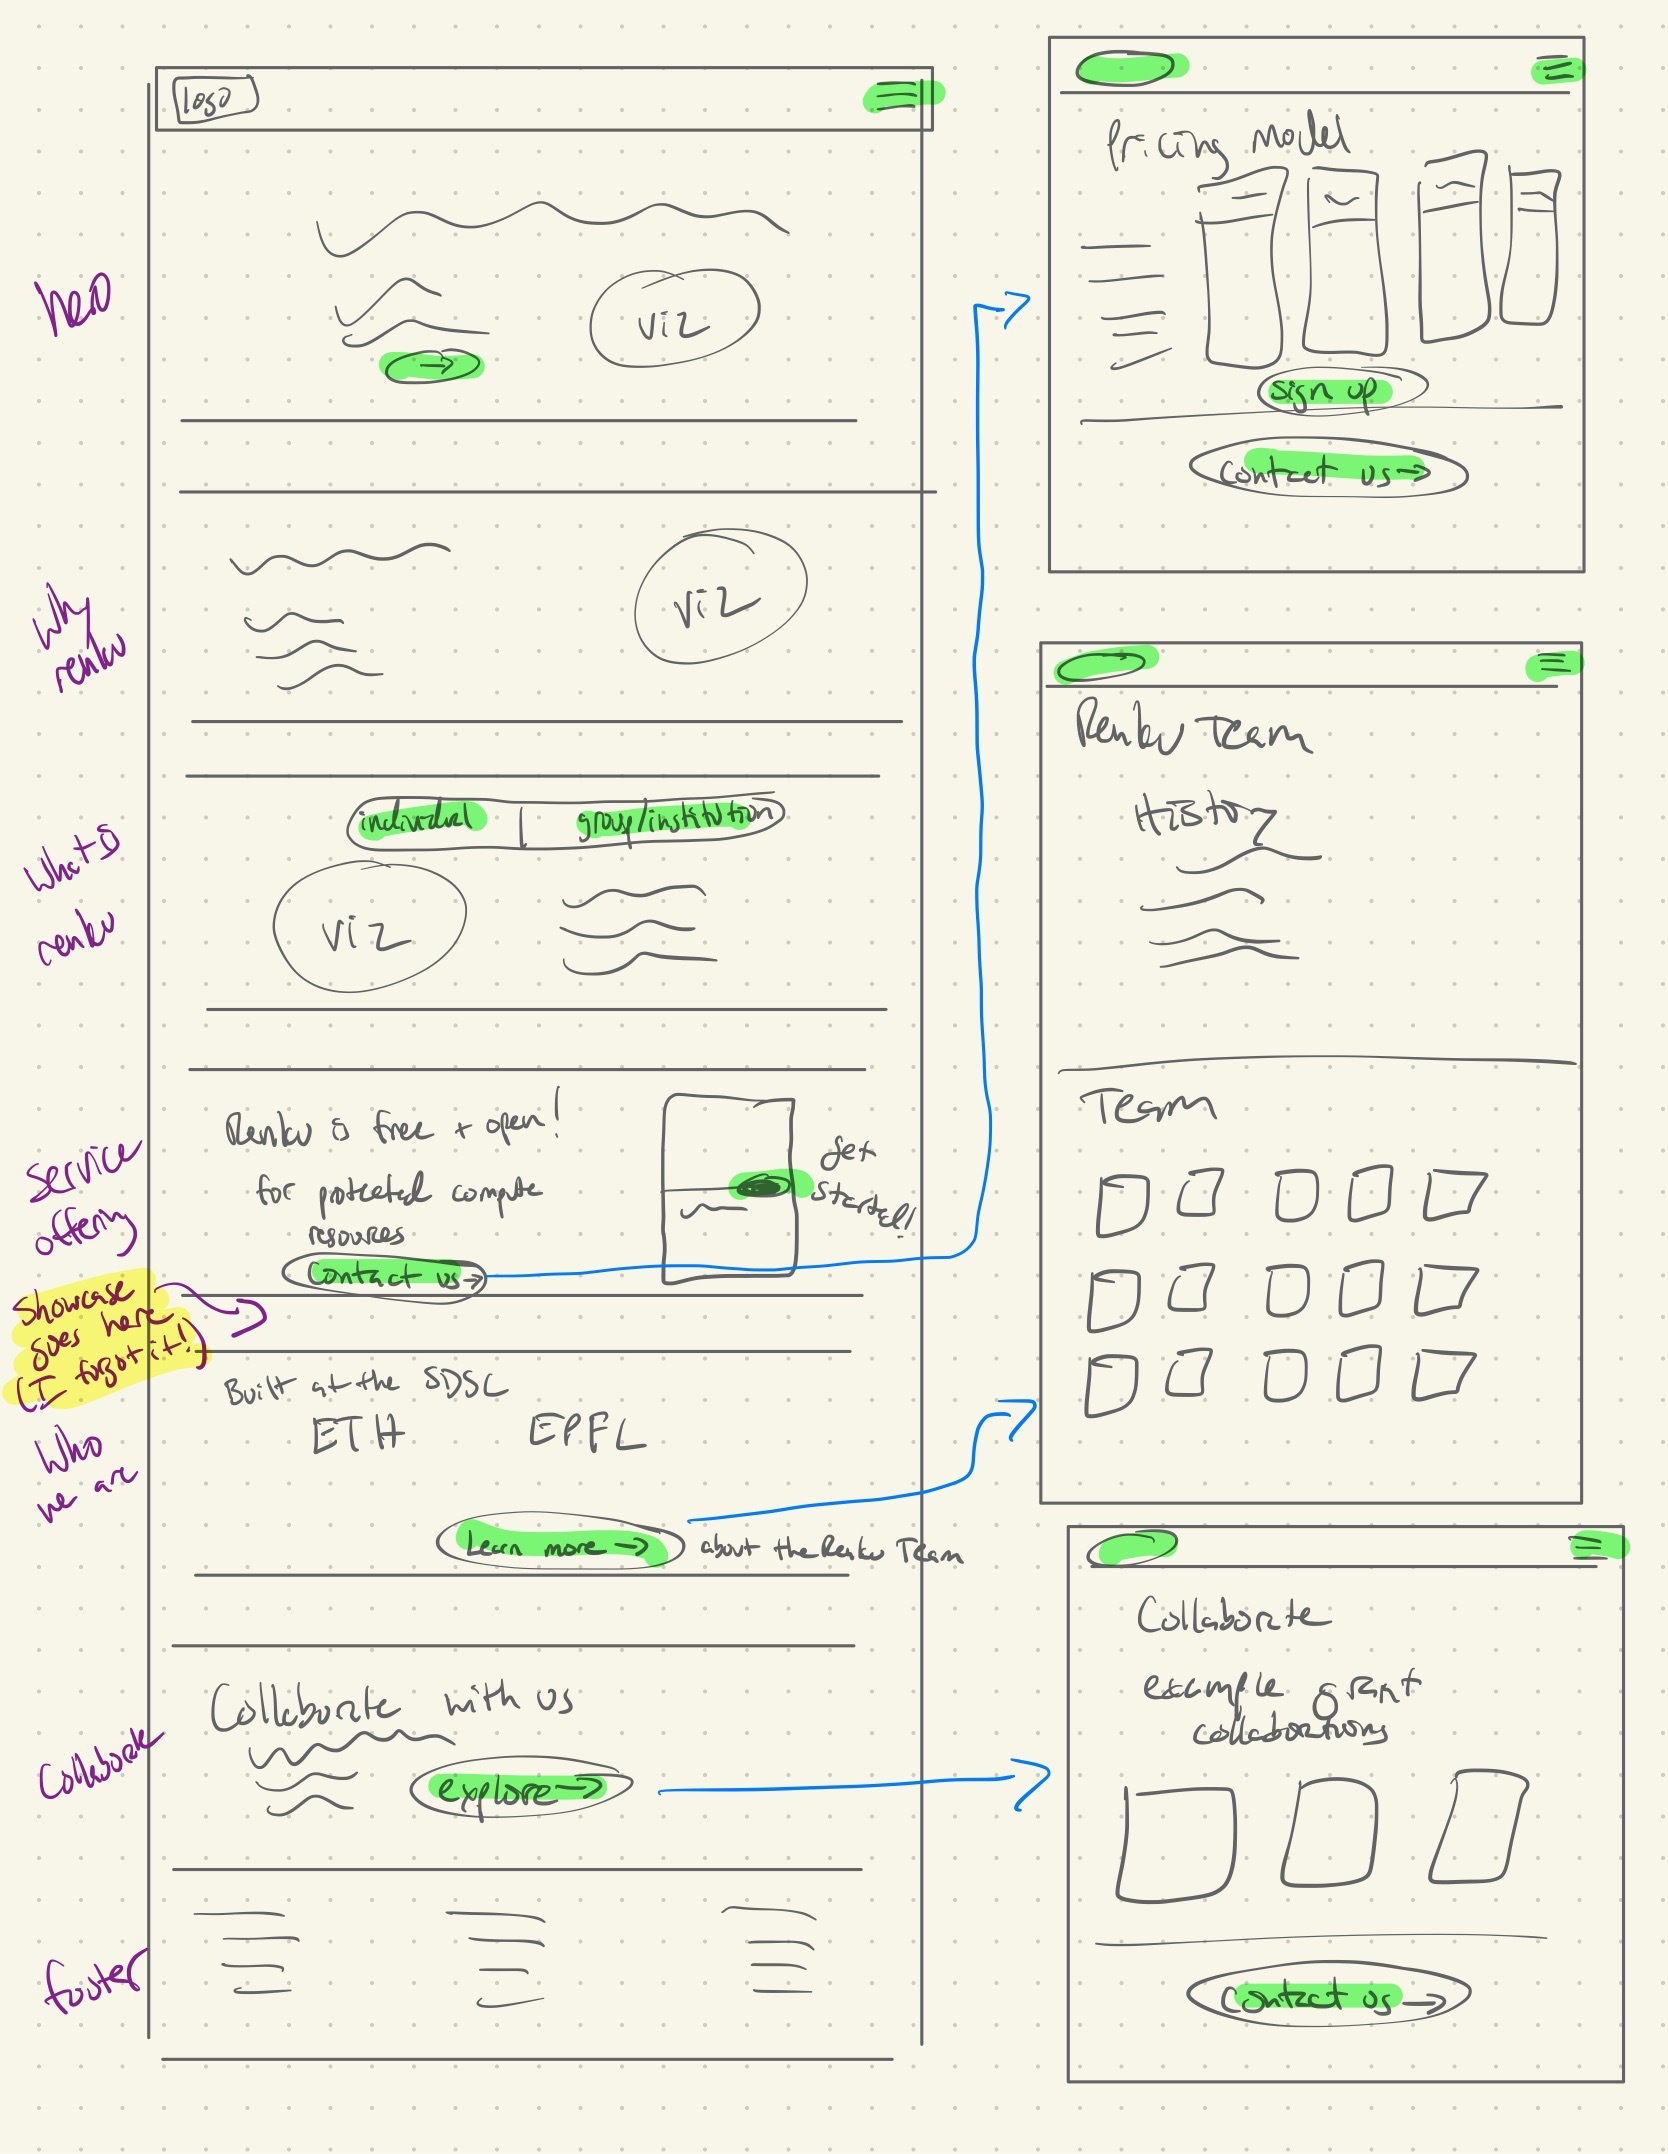 logo
hero
viz
why
renku
viz
What is
renku
individual | group/institution
viz
Service
offering
Renku is free + open!
for protected compute
resources
Contact us →
Get
started!
Showcase
goes here
(I forgot it!)
Who
we are
Built at the SDSC
ETH EPFL
Learn more → about the Renku Team
Collaborate
Collaborate with us
explore →
footer
Pricing Model
sign up
Contact us →
Renku Team
History
Team
Collaborate
example grant
collaborations
Contact us →